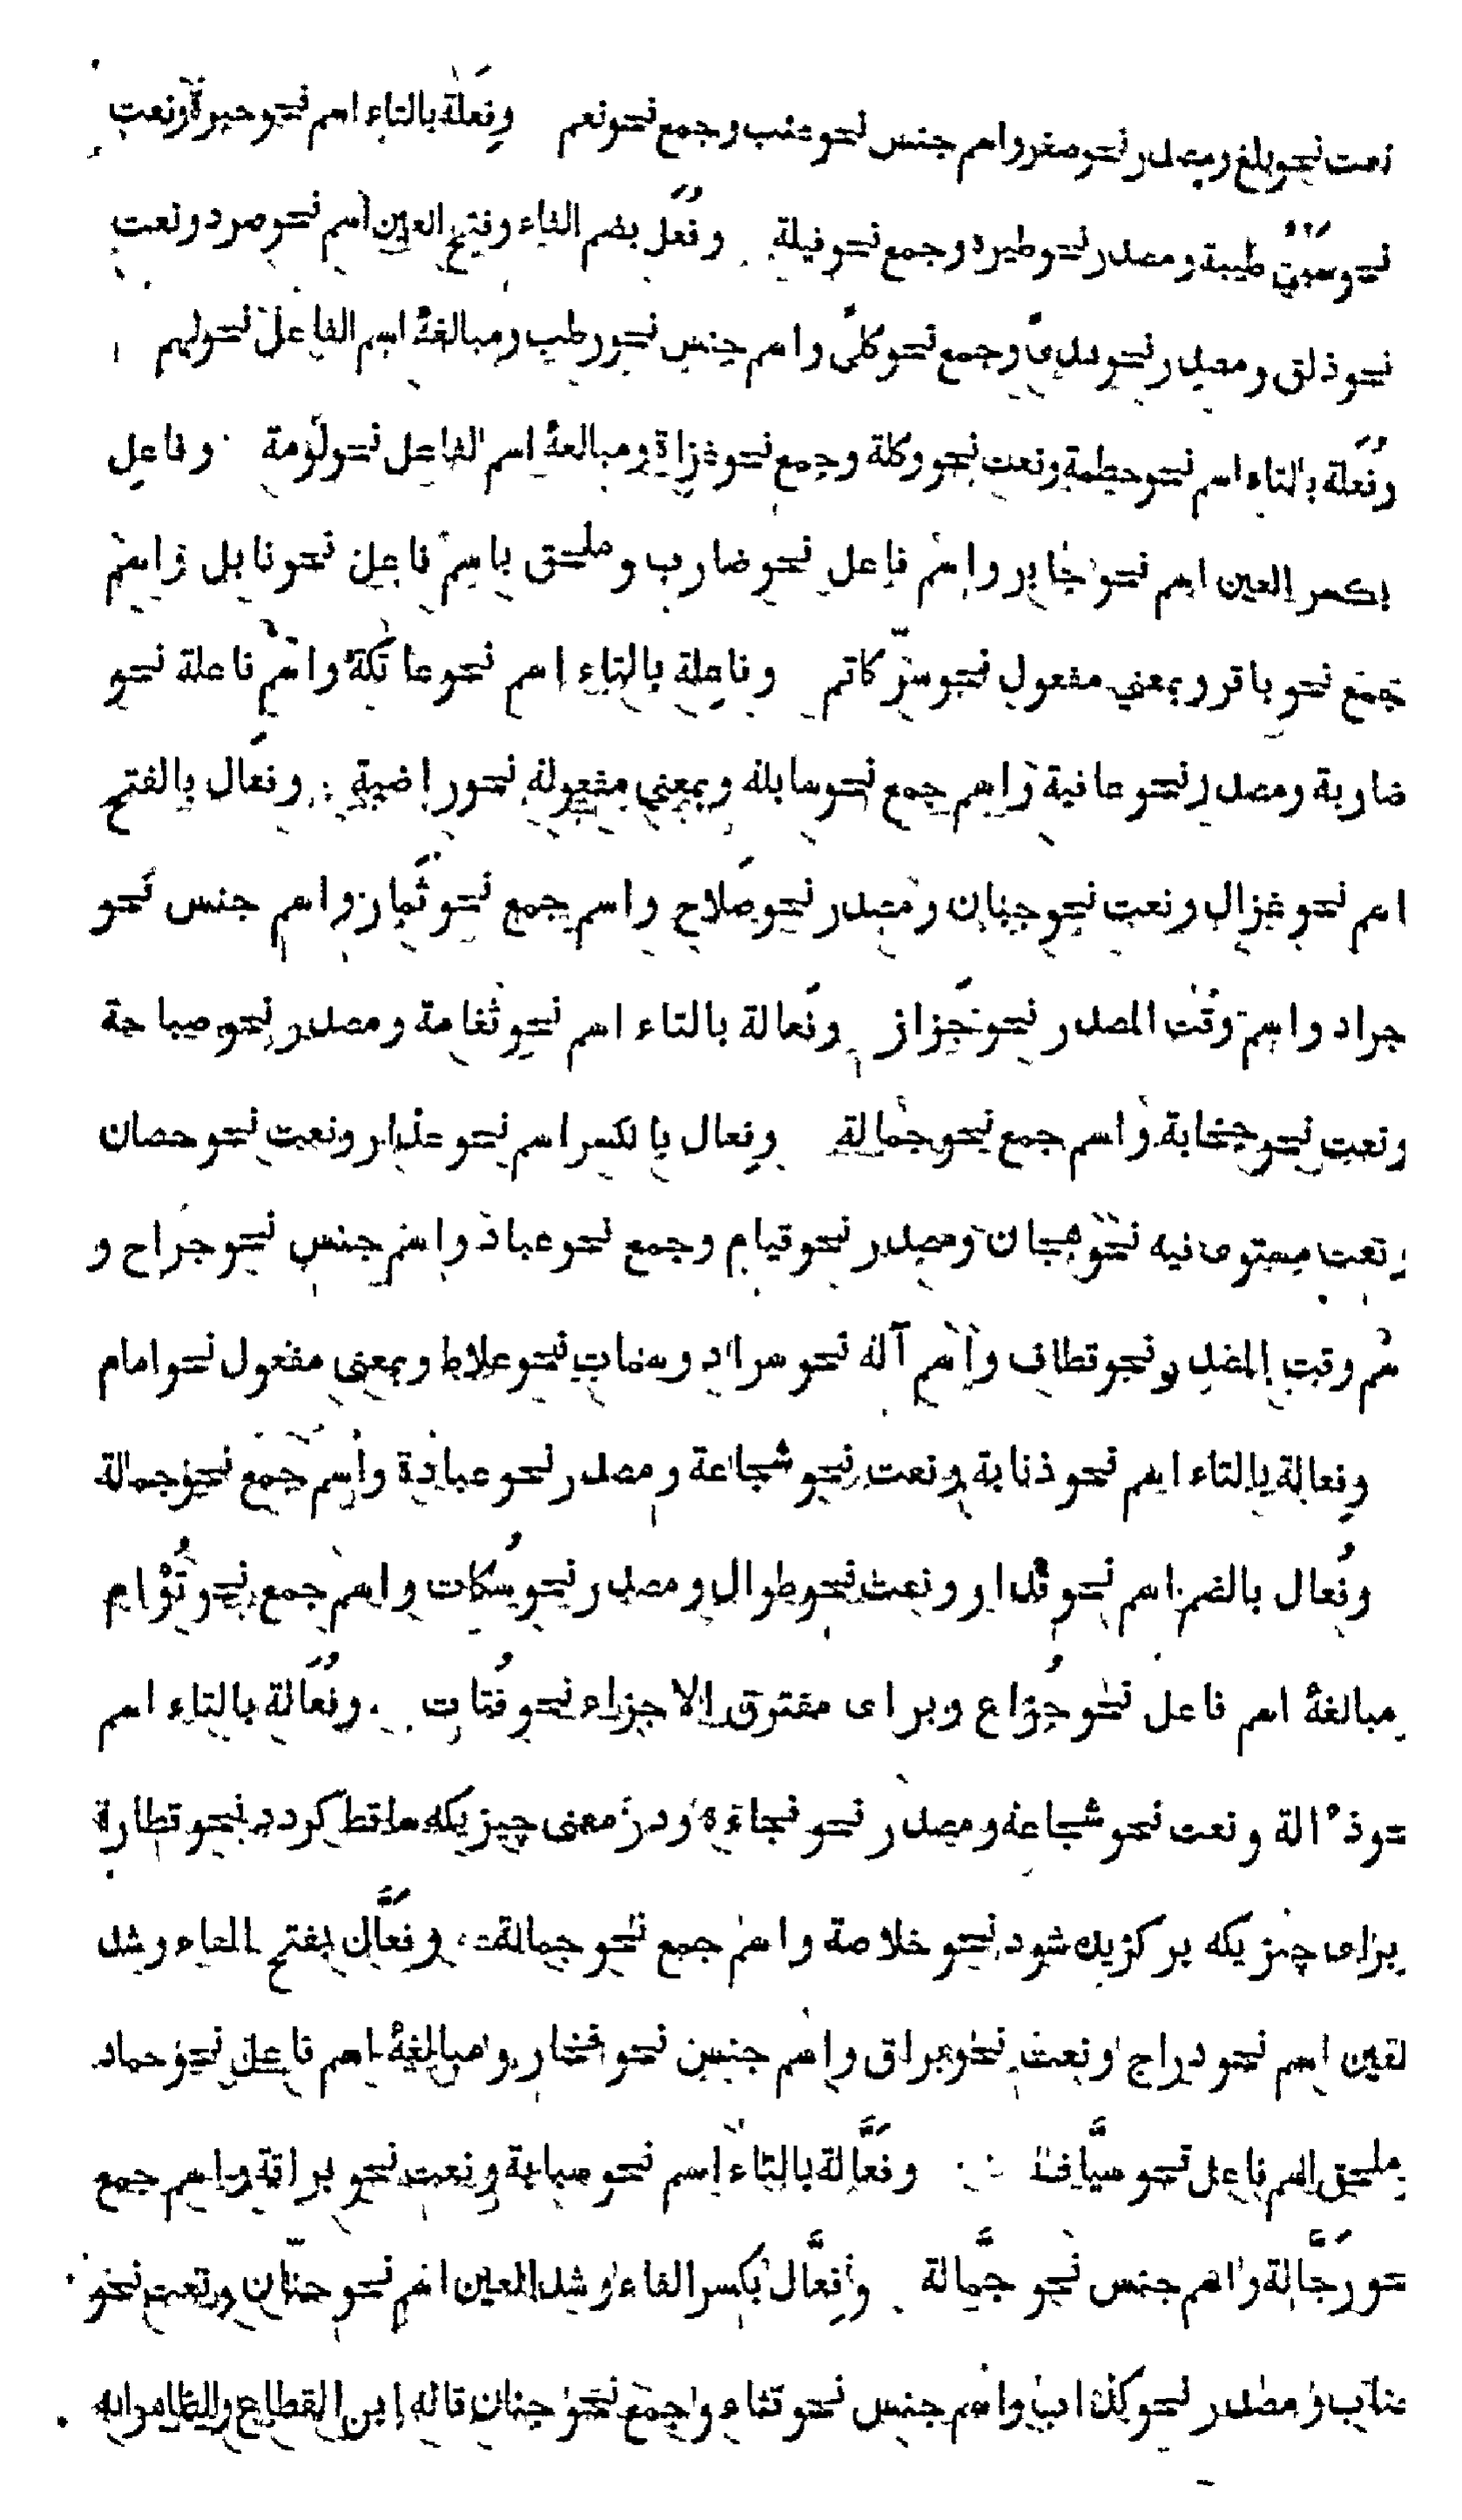 نعت نحو بلغ ومصدر نحو صغر واسم جنس نحو عنب وجمع نحو نعم وفعلة بالتاء اسم نحو حبرة ونعت
نحو طيبة ومصدر نحو طيرة وجمع نحو فيلة وفُعَل بضم الفاء وفتح العين اسم نحو صرد ونعت
نحو ذلق ومصدر نحو هدى وجمع نحو كلى واسم جنس نحو رطب ومبالغهٔ اسم الفاعل نحو لهم
وفُعَلة بالتاء اسم نحو حطمة ونعت نحو وكلة وجمع نحو غزاة ومبالغهٔ اسم الفاعل نحو لومة وفاعل
بكسر العين اسم نحو جابر واسم فاعل نحو ضارب وملحق باسم فاعل نحو نابل واسم
جمع نحو باقر وبمعنى مفعول نحو سرّ كاتم وفاعلة بالتاء اسم نحو عاتكة واسم فاعلة نحو
ضاربة ومصدر نحو عافية واسم جمع نحو سابلة وبمعنى مفعولة نحو راضية وفعال بالفتح
اسم نحو غزال ونعت نحو جبان ومصدر نحو صلاح واسم جمع نحو ثمار واسم جنس نحو
جراد واسم وقت المصدر نحو جَزاز وفَعالة بالتاء اسم نحو ثغامة ومصدر نحو صباحة
ونعت نحو جخابة واسم جمع نحو جمالة وفِعال بالكسر اسم نحو عذار ونعت نحو حصان
ونعت مستوى فيه نحو هجان ومصدر نحو قيام وجمع نحو عباد واسم جنس نحو جراح و
سم وقت المصدر نحو قطاف واسم آلة نحو سراد وسمات نحو علاط وبمعنى مفعول نحو امام
وفعالة بالتاء اسم نحو ذنابة ونعت نحو شجاعة ومصدر نحو عبادة واسم جمع نحو جمالة
وفُعال بالضم اسم نحو قدار ونعت نحو طوال ومصدر نحو سُكات واسم جمع نحو تُؤام
مبالغهٔ اسم فاعل نحو جزاع وبراى مفترق الاجزاء نحو فُتات وفُعَالة بالتاء اسم
حو ذؤالة ونعت نحو شجاعة ومصدر نحو فجاءة ودر معنى چيزيكه ساقط كردد نحو قطارة
براى چيزيكه بركزيده شود نحو خلاصة واسم جمع نحو جمالة وفعَّال بفتح الفاء وشد
لعين اسم نحو دراج ونعت نحو براق واسم جنس نحو فخار ومبالغهٔ اسم فاعل نحو حماد
ملحق اسم فاعل نحو سيَّاف وفعَّالة بالتاء اسم نحو سبابة ونعت نحو براقة واسم جمع
حو رجَّالة واسم جنس نحو جمَّالة وفعَّال بكسر الفاء وشد العين اسم نحو حنّان ونعت نحو
ناب ومصدر نحو كذاب واسم جنس نحو قثاء وجمع نحو جنان قاله ابن القطاع والظاهر انه